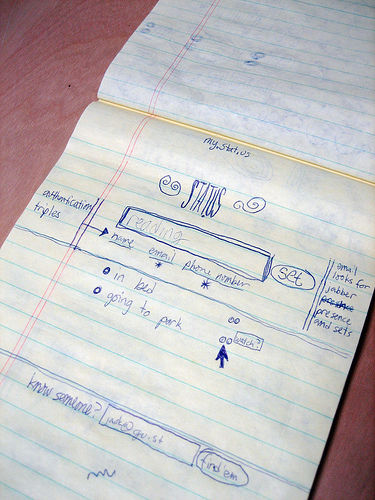 my.stat.us
STATUS
authentication
triples
reading
set
name email phone number
in bed
going to park
watch?
email
looks for
jabber
presence
presence
and sets
know someone?
find em